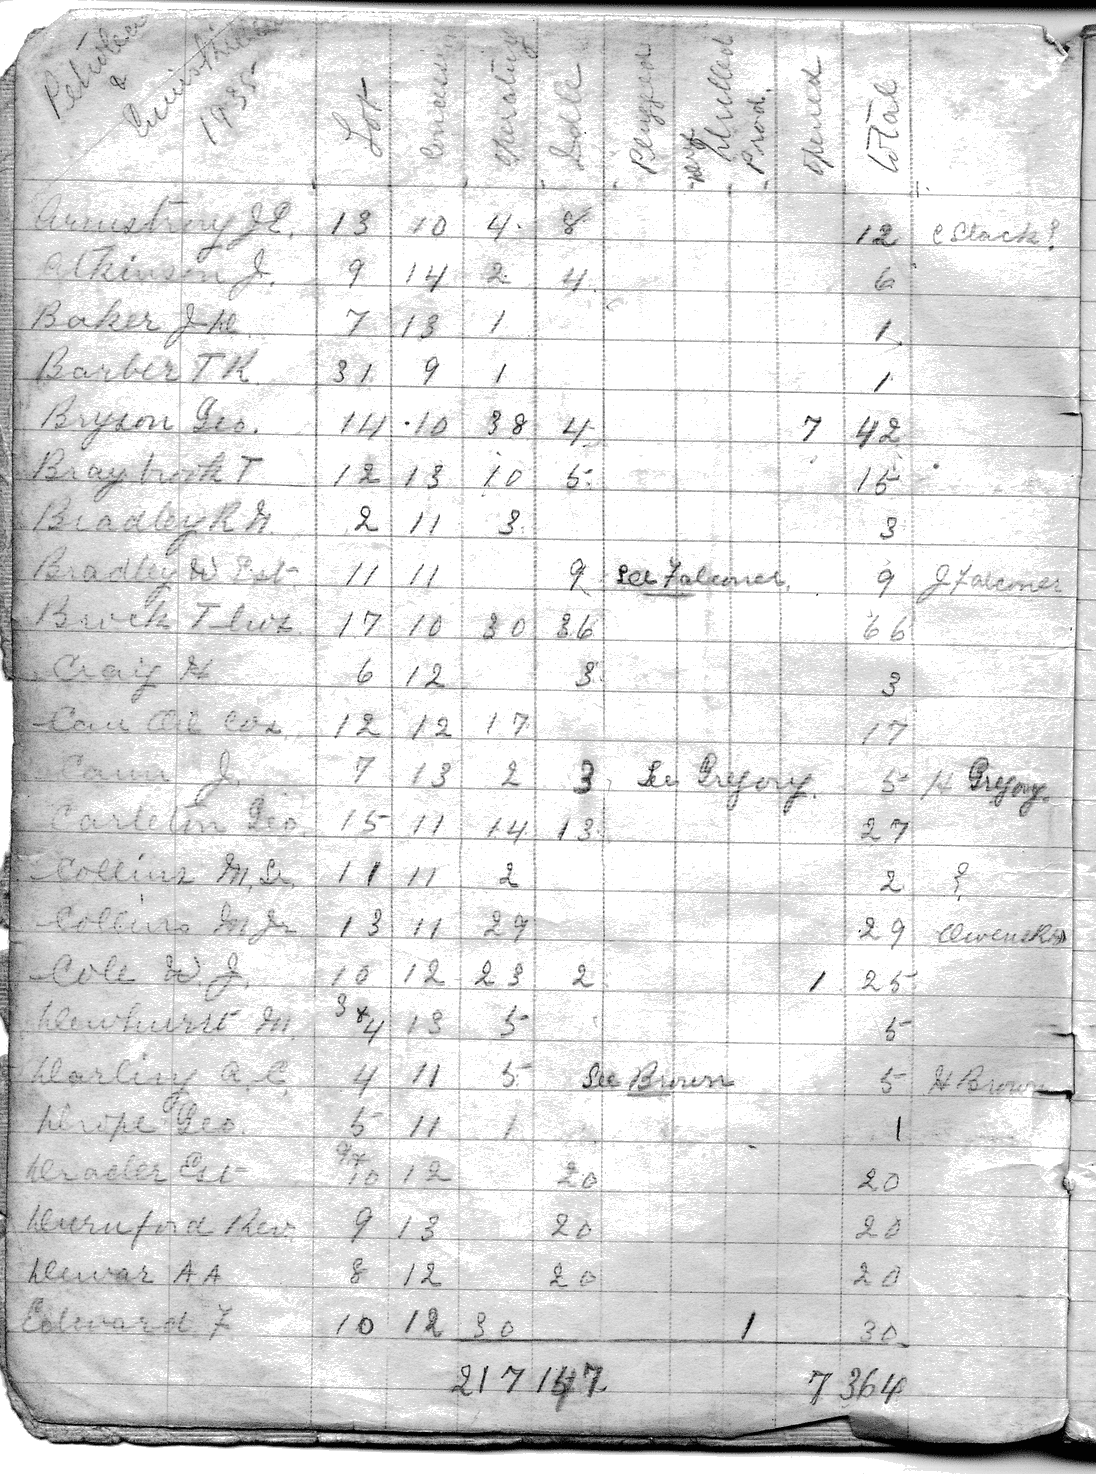 Petrolea
&
Enniskillen
1935
Lot Concession Operating Idle Plugged Drilled Prod. Opened Total
Armstrong J E. 13 10 4 8 12 C Slack?
Atkinson J. 9 14 2 4 6
Baker J H. 7 13 1 1
Barber T R. 31 9 1 1
Bryson Geo. 14 10 38 4 7 42
Braybrook T 12 13 10 5 15
Bradley R H. 2 11 3 3
Bradley W Est 11 11 9 See Falconer. 9 J Falconer
Brock T 17 10 30 36 66
Craig H 6 12 3 3
Can Oil Cos 12 12 17 17
Cann J. 7 13 2 3 See Gregory. 5 H Gregory.
Carleton Geo. 15 11 14 13 27
Collins M. Sr. 11 11 2 2 ?
Collins M Jr 13 11 29 29
Cole W. J. 10 12 23 2 1 25
Dewhurst M. 3 & 4 13 5 5
Darling A. C. 4 11 5 See Brown 5 H Brown
Drope Geo. 5 11 1 1
Drader Est 9 & 10 12 20 20
Durnford Rev. 9 13 20 20
Dewar A A 8 12 20 20
Edward F 10 12 30 1 30
217 147 7 364